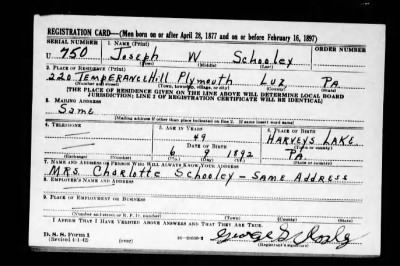 REGISTRATION CARD—(Men born on or after April 28, 1877 and on or before February 16, 1897)
SERIAL NUMBER 1. NAME (Print) ORDER NUMBER
U 750 Joseph W Schooley
(First) (Middle) (Last)
2. PLACE OF RESIDENCE (Print)
220 Temperance Hill Plymouth Luz Pa
(Number and street) (Town, township, village, or city) (County) (State)
[THE PLACE OF RESIDENCE GIVEN ON THE LINE ABOVE WILL DETERMINE LOCAL BOARD
JURISDICTION; LINE 2 OF REGISTRATION CERTIFICATE WILL BE IDENTICAL]
3. MAILING ADDRESS
Same
[Mailing address if other than place indicated on line 2. If same insert word same]
4. TELEPHONE 5. AGE IN YEARS 6. PLACE OF BIRTH
49 Harveys Lake
DATE OF BIRTH (Town or county)
6 9 1892 Pa.
(Exchange) (Number) (Mo.) (Day) (Yr.) (State or country)
7. NAME AND ADDRESS OF PERSON WHO WILL ALWAYS KNOW YOUR ADDRESS
Mrs. Charlotte Schooley - Same Address
8. EMPLOYER'S NAME AND ADDRESS
9. PLACE OF EMPLOYMENT OR BUSINESS
(Number and street or R. F. D. number) (Town) (County) (State)
I AFFIRM THAT I HAVE VERIFIED ABOVE ANSWERS AND THAT THEY ARE TRUE.
D. S. S. Form 1
(Revised 4-1-42) (over) (Registrant's signature)